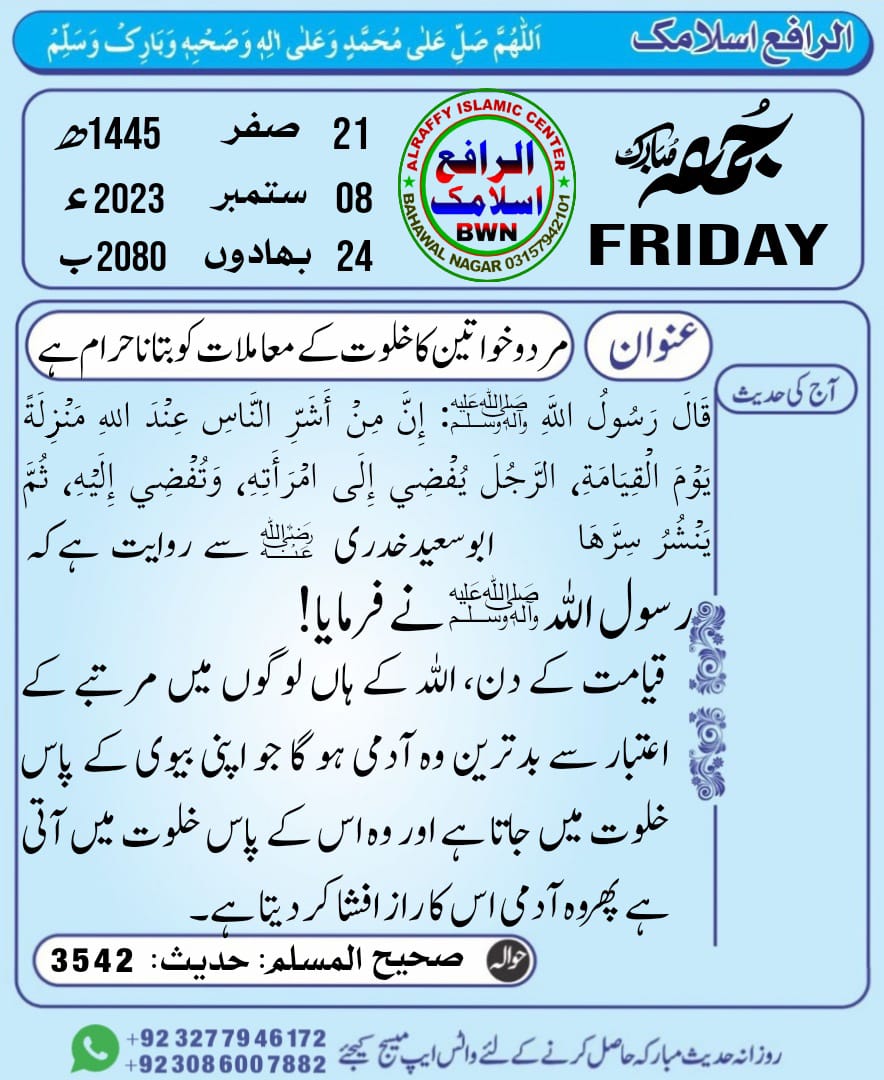 الرافع اسلامک
اَللّٰهُمَّ صَلِّ عَلٰی مُحَمَّدٍ وَعَلٰی اٰلِهٖ وَصَحْبِهٖ وَبَارِکْ وَسَلِّمْ
جُمعہ مُبارک
FRIDAY
ALRAFFY ISLAMIC CENTER
الرافع
اسلامک
BWN
BAHAWAL NAGAR 03157942101
21 صفر 1445ھ
08 ستمبر 2023ء
24 بھادوں 2080ب
عنوان
مرد و خواتین کا خلوت کے معاملات کو بتانا حرام ہے
آج کی حدیث
قَالَ رَسُولُ اللَّهِ ﷺ: إِنَّ مِنْ أَشَرِّ النَّاسِ عِنْدَ اللهِ مَنْزِلَةً
يَوْمَ الْقِيَامَةِ، الرَّجُلَ يُفْضِي إِلَى امْرَأَتِهِ، وَتُفْضِي إِلَيْهِ، ثُمَّ
يَنْشُرُ سِرَّهَا ابو سعید خدری رضی اللہ عنہ سے روایت ہے کہ
رسول اللہ ﷺ نے فرمایا!
قیامت کے دن، اللہ کے ہاں لوگوں میں مرتبے کے
اعتبار سے بدترین وہ آدمی ہو گا جو اپنی بیوی کے پاس
خلوت میں جاتا ہے اور وہ اس کے پاس خلوت میں آتی
ہے پھر وہ آدمی اس کا راز افشا کر دیتا ہے۔
حوالہ صحیح المسلم: حدیث: 3542
روزانہ حدیث مبارکہ حاصل کرنے کے لئے واٹس ایپ میسج کیجئے
+92 3277946172
+92 3086007882